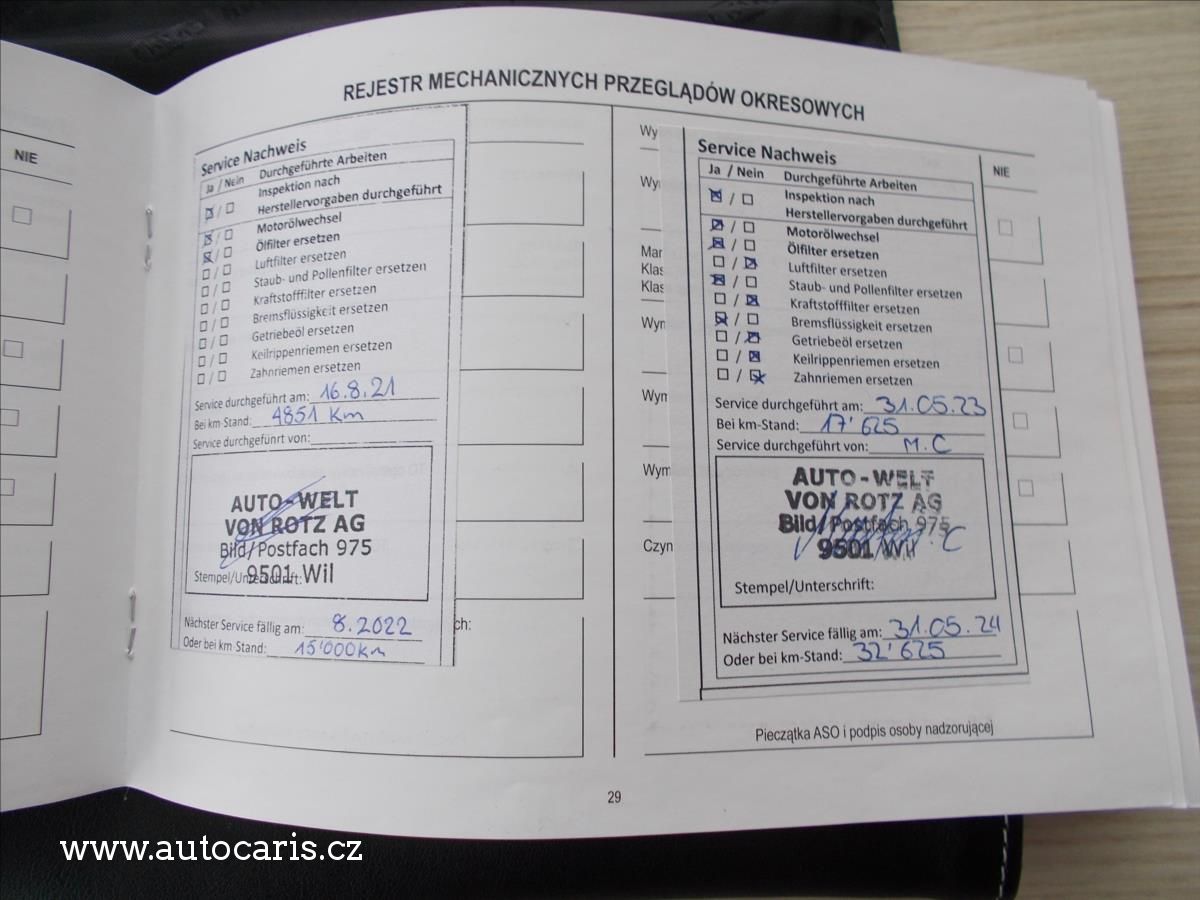 REJESTR MECHANICZNYCH PRZEGLĄDÓW OKRESOWYCH
NIE
Service Nachweis
Ja / Nein Durchgeführte Arbeiten
Inspektion nach
Herstellervorgaben durchgeführt
Motorölwechsel
Ölfilter ersetzen
Luftfilter ersetzen
Staub- und Pollenfilter ersetzen
Kraftstofffilter ersetzen
Bremsflüssigkeit ersetzen
Getriebeöl ersetzen
Keilrippenriemen ersetzen
Zahnriemen ersetzen
Service durchgeführt am: 16.8.21
Bei km-Stand: 4851 Km
Service durchgeführt von:
AUTO-WELT
VON ROTZ AG
Bild/Postfach 975
9501 Wil
Stempel/Unterschrift:
Nächster Service fällig am: 8.2022
Oder bei km Stand: 15'000Km
ch:
Wy
Wyr
Mar
Klas
Klas
Wyn
Wyn
Wym
Czyn
Service Nachweis
Ja / Nein Durchgeführte Arbeiten
Inspektion nach
Herstellervorgaben durchgeführt
Motorölwechsel
Ölfilter ersetzen
Luftfilter ersetzen
Staub- und Pollenfilter ersetzen
Kraftstofffilter ersetzen
Bremsflüssigkeit ersetzen
Getriebeöl ersetzen
Keilrippenriemen ersetzen
Zahnriemen ersetzen
Service durchgeführt am: 31.05.23
Bei km-Stand: 17'625
Service durchgeführt von: M.C
AUTO-WELT
VON ROTZ AG
Bild/Postfach 975
9501 Wil
Stempel/Unterschrift:
Nächster Service fällig am: 31.05.24
Oder bei km-Stand: 32'625
NIE
Pieczątka ASO i podpis osoby nadzorującej
29
www.autocaris.cz